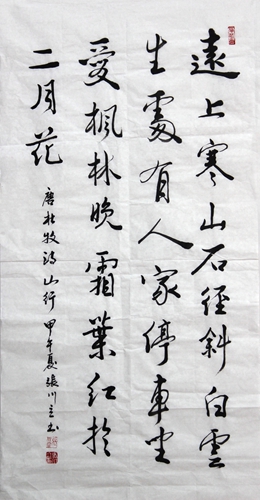 遠上寒山石徑斜白雲
生處有人家停車坐
愛楓林晚霜葉紅於
二月花
唐杜牧詩山行甲午夏張川立书